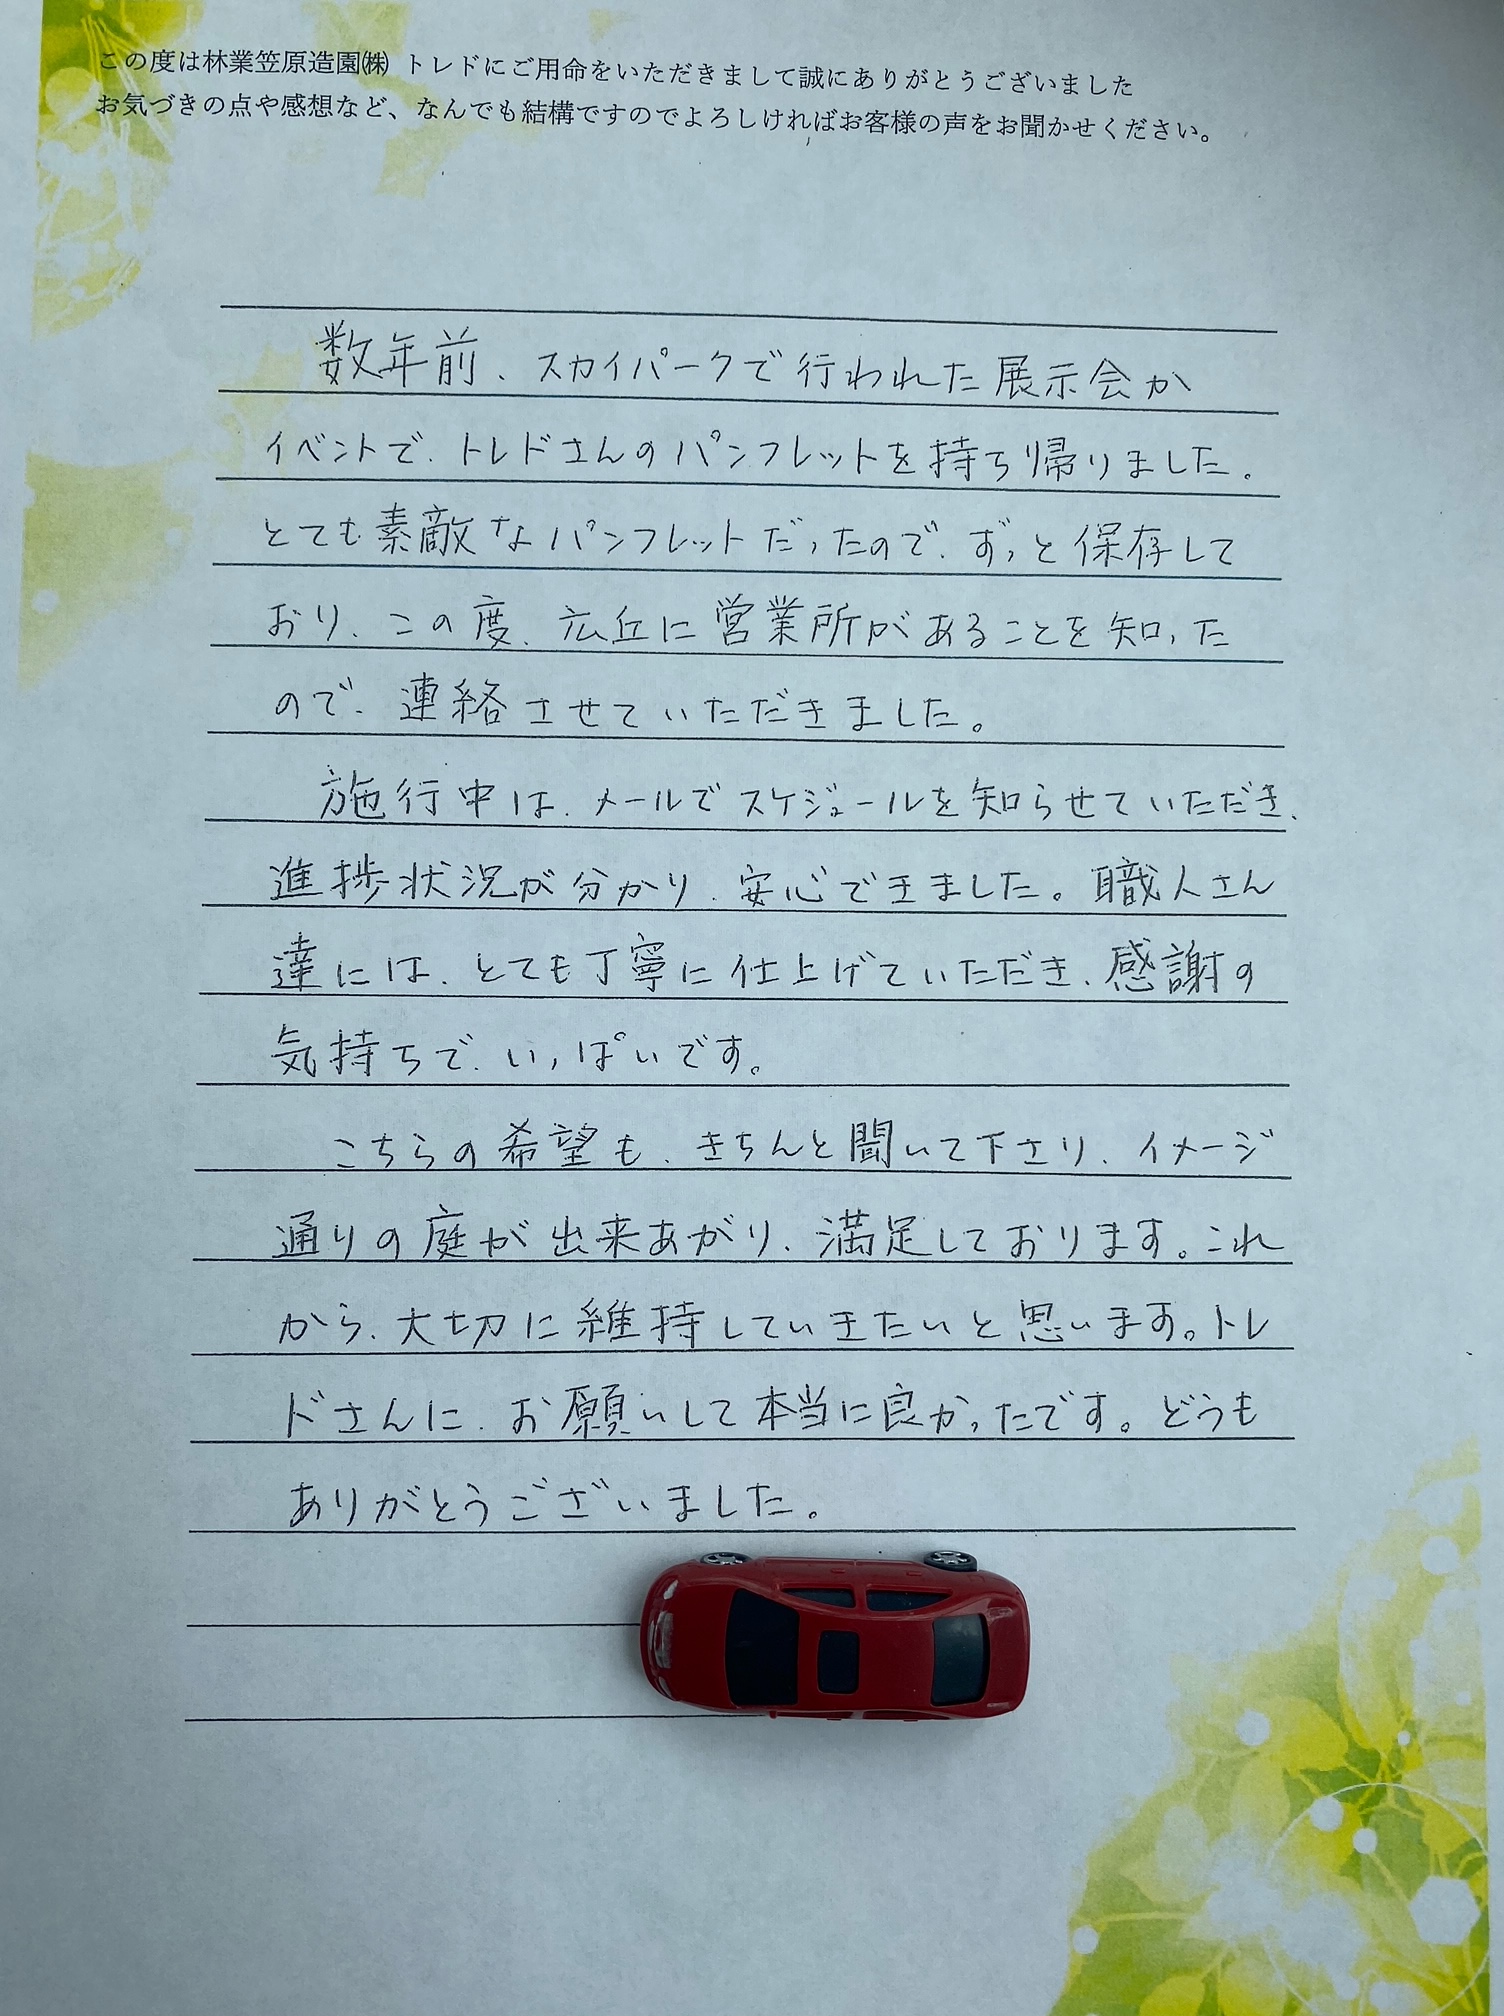 この度は林業笠原造園㈱ トレドにご用命をいただきまして誠にありがとうございました
お気づきの点や感想など、なんでも結構ですのでよろしければお客様の声をお聞かせください。
数年前、スカイパークで行われた展示会か
イベントで、トレドさんのパンフレットを持ち帰りました。
とても素敵なパンフレットだったので、ずっと保存して
おり、この度、広丘に営業所があることを知った
ので、連絡させていただきました。
施行中は、メールでスケジュールを知らせていただき、
進捗状況が分かり、安心できました。職人さん
達には、とても丁寧に仕上げていただき、感謝の
気持ちで、いっぱいです。
こちらの希望も、きちんと聞いて下さり、イメージ
通りの庭が出来あがり、満足しております。これ
から、大切に維持していきたいと思います。トレ
ドさんに、お願いして本当に良かったです。どうも
ありがとうございました。